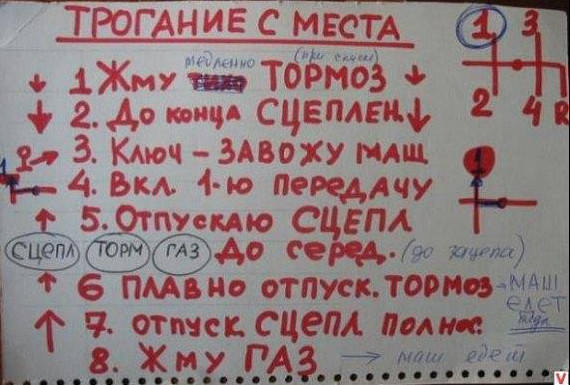 ТРОГАНИЕ С МЕСТА
медленно (при спуске)
1 Жму ТОРМОЗ
2. До конца СЦЕПЛЕН.
3. Ключ – ЗАВОЖУ МАШ
4. Вкл. 1-ю передачу
5. Отпускаю СЦЕПЛ
СЦЕПЛ ТОРМ ГАЗ До серед. (до зацепа)
6 ПЛАВНО отпуск. ТОРМОЗ - МАШ
едет
7. отпуск СЦЕПЛ полнос.
8. Жму ГАЗ → маш едет
1 3
2 4 R
1
1
V